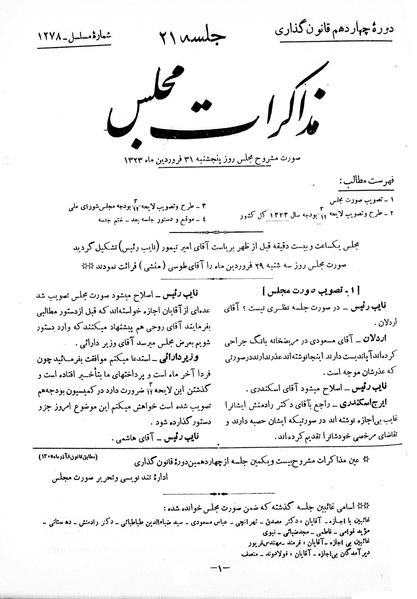 دورهٔ چهاردهم قانون گذاری
جلسه ۲۱
شمارهٔ مسلسل ـ ۱۲۷۸
مذاکرات مجلس
صورت مشروح مجلس روز پنجشنبه ۳۱ فروردین ماه ۱۳۲۳
فهرست مطالب:
۱ ـ تصویب صورت مجلس
۲ ـ طرح وتصویب لایحه ۳/۱۲ بودجه سال ۱۳۲۳ کل کشور
۳ ـ طرح وتصویب لایحه ۳/۱۲ بودجه مجلس شورای ملی
۴ ـ موقع و دستور جلسه بعد ـ ختم جلسه
مجلس یکساعت و بیست دقیقه قبل از ظهر بریاست آقای امیر تیمور (نایب رئیس) تشکیل گردید
صورت مجلس روز سه شنبه ۲۹ فروردین ماه را آقای طوسی (منشی) قرائت نمودند
[۱ ـ تصویب صورت مجلس]
نایب رئیس ـ در صورت جلسه نظری نیست؟ آقای
اردلان.
اردلان ـ آقای مسعودی در مریضخانه بانک جراحی
کرده‌اند آپاندیست دارند اینجا نوشته‌اند عذر ندارند در صورتی
که عذرشان موجه است.
نایب رئیس ـ اصلاح میشود آقای اسکندری.
ایرج اسکندری ـ راجع بآقای دکتر رادمنش ایشان را
غایب بی‌اجازه نوشته اند در صورتیکه ایشان حصبه دارند و
تقاضای مرخصی خودشان را تقدیم کرده‌اند.
نایب رئیس ـ اصلاح میشود صورت مجلس تصویب شد
عده‌ای از آقایان اجازه خواسته‌اند که قبل از دستور مطالبی
بفرمایند آقای روحی هم پیشنهاد میکنند که وارد دستور
شویم بعرض مجلس میرسد آقای وزیر دارائی.
وزیر دارائی ـ استدعا میکنم موافقت بفرمائید چون
فردا آخر ماه است و پرداختهای ما بتأخیر افتاده است و
گذشتن این لایحه ۳/۱۲ ضرورت دارد در کمیسیون بودجه هم
تصویب شده است خواهش میکنم این موضوع امروز جزو
دستور گذارده شود.
نایب رئیس ـ آقای هاشمی.
عین مذاکرات مشروح بیست و یکمین جلسه از چهاردهمین دورهٔ قانون گذاری
(مطابق قانون ۸ آذر ماه ۱۳۰۵)
ادارهٔ تند نویسی و تحریر صورت مجلس
اسامی غائبین جلسه گذشته که ضمن صورت مجلس خوانده شده:
غائبین با اجازه ـ آقایان: دکتر مصدق ـ تهرانچی ـ عباس مسعودی ـ سید ضیاءالدین طباطبائی ـ دکتر رادمنش ـ دهستانی ـ
مؤید قوامی ـ فاطمی ـ مجد ضیائی ـ نبوی
غائبین بی اجازه ـ آقایان: فرمند ـ مهندس فریور
دیر آمدگان بی‌اجازه ـ آقایان: فولادوند ـ منصف
ـ۱ـ